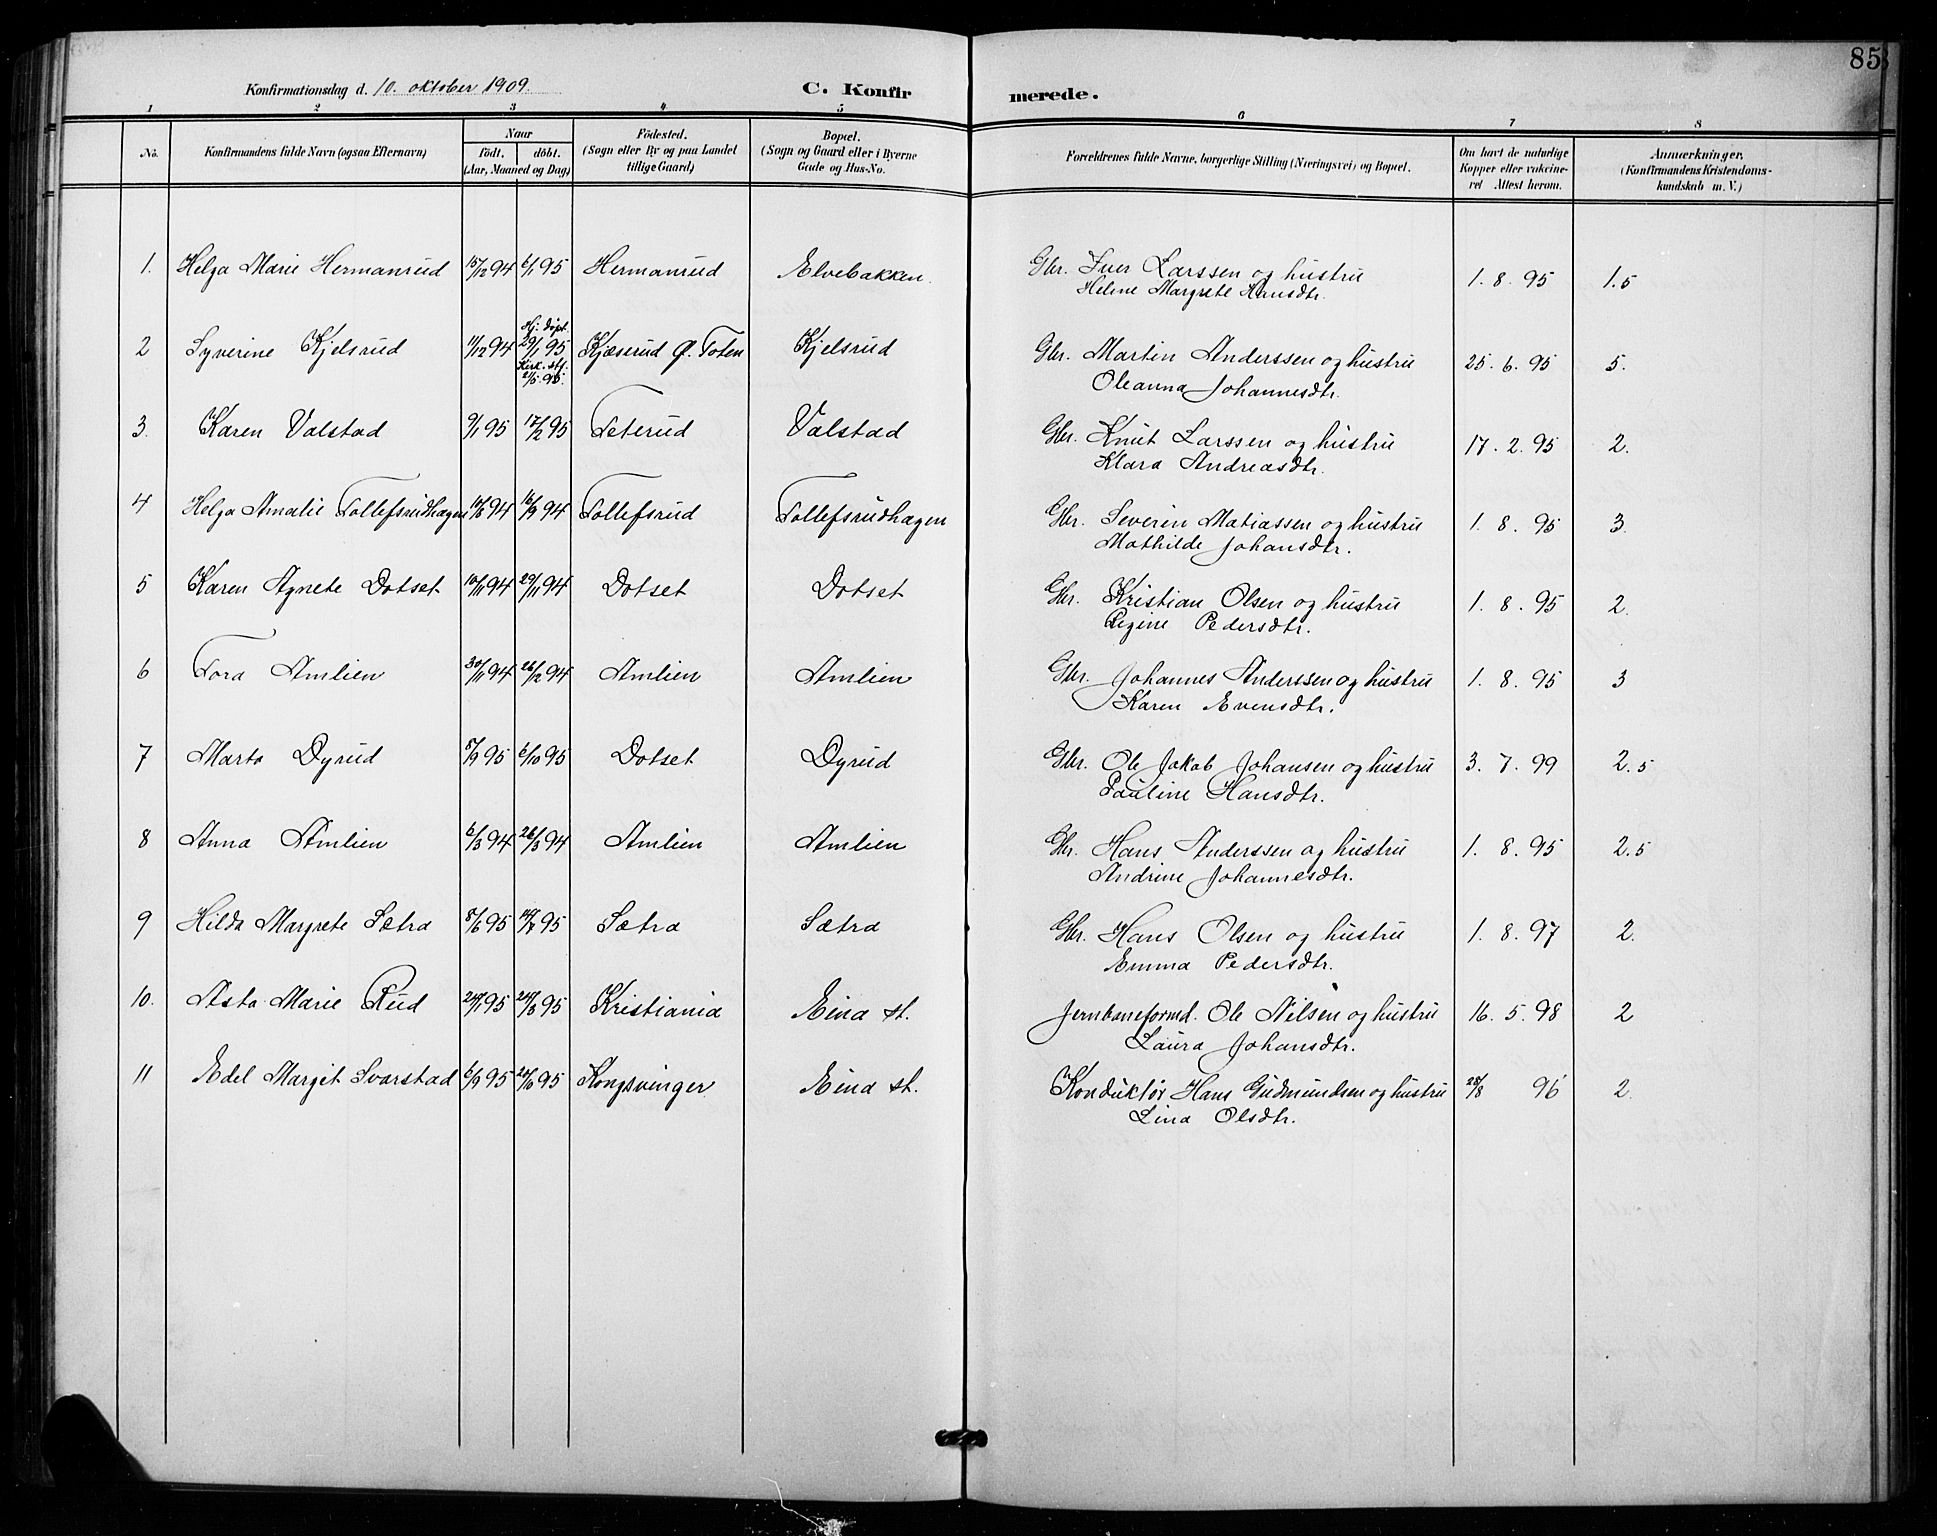 85
Konfirmationsdag d. 10. oktober 1909.
C. Konfirmerede.
1 2 3 4 5 6 7 8
No. Konfirmandens fulde Navn (ogsaa Efternavn) Naar födt. döbt. (Aar, Maaned og Dag) Födested. (Sogn eller By og paa Landet tillige Gaard) Bopæl. (Sogn og Gaard eller i Byerne Gade og Hus-No. Forældrenes fulde Navne, borgerlige Stilling (Næringsvei) og Bopæl. Om havt de naturlige Kopper eller vakcineret Attest herom. Anmærkninger. (Konfirmandens Kristendomskundskab m. V.)
1. Helga Marie Hermanrud 15/12 94 6/1 95 Hermanrud Elvebakken. Gbr. Iver Larssen og hustru 1. 8. 95 1.5
Helene Margrete Hansdtr.
2 Syverine Kjelsrud 11/12 94 Hj. döpt 29/1 95 Kirk. stf. 2/5 95. Kjæserud Ø. Toten Kjelsrud Gbr. Martin Anderssen og hustru 25. 6. 95 5.
Oleanna Johannesdtr.
3. Karen Valstad 9/1 95 17/2 95 Teterud Valstad Gbr. Knut Larssen og hustru 17. 2. 95 2.
Klara Andreasdtr.
4 Helga Amalie Tollefsrudhagen 94 16/9 94 Tollefsrud Tollefsrudhagen Gbr. Severin Matiassen og hustru 1. 8. 95 3.
Mathilde Johansdtr.
5 Karen Agnete Dotset 10/11 94 29/11 94 Dotset Dotset Gbr. Kristian Olsen og hustru 1. 8. 95 2.
Regine Pedersdtr.
6 Tora Amlien 30/11 94 26/12 94 Amlien Amlien Gbr. Johannes Anderssen og hustru 1. 8. 95 3
Karen Evensdtr.
7 Marta Dyrud 5/9 95 6/10 95 Dotset Dyrud Gbr. Ole Jakob Johansen og hustru 3. 7. 99 2.5
Pauline Hansdtr.
8 Anna Amlien 6/3 94 26/3 94 Amlien Amlien Gbr. Hans Anderssen og hustru 1. 8. 95 2.5
Andrine Johannesdtr.
9 Hilda Margrete Sætra 5/6 95 14/7 95 Sætra Sætra Gbr. Hans Olsen og hustru 1. 8. 97 2.
Emma Pedersdtr.
10. Asta Marie Rud 24/1 95 24/3 95 Kristiania Eina st. Jernbaneformd. Ole Nilsen og hustru 16. 5. 98 2
Laura Johansdtr.
11 Edel Margit Svarstad 6/9 95 95 Kongsvinger Eina st. Konduktör Hans Gudmundsen og hustru 28/8 96 2.
Lina Olsdtr.